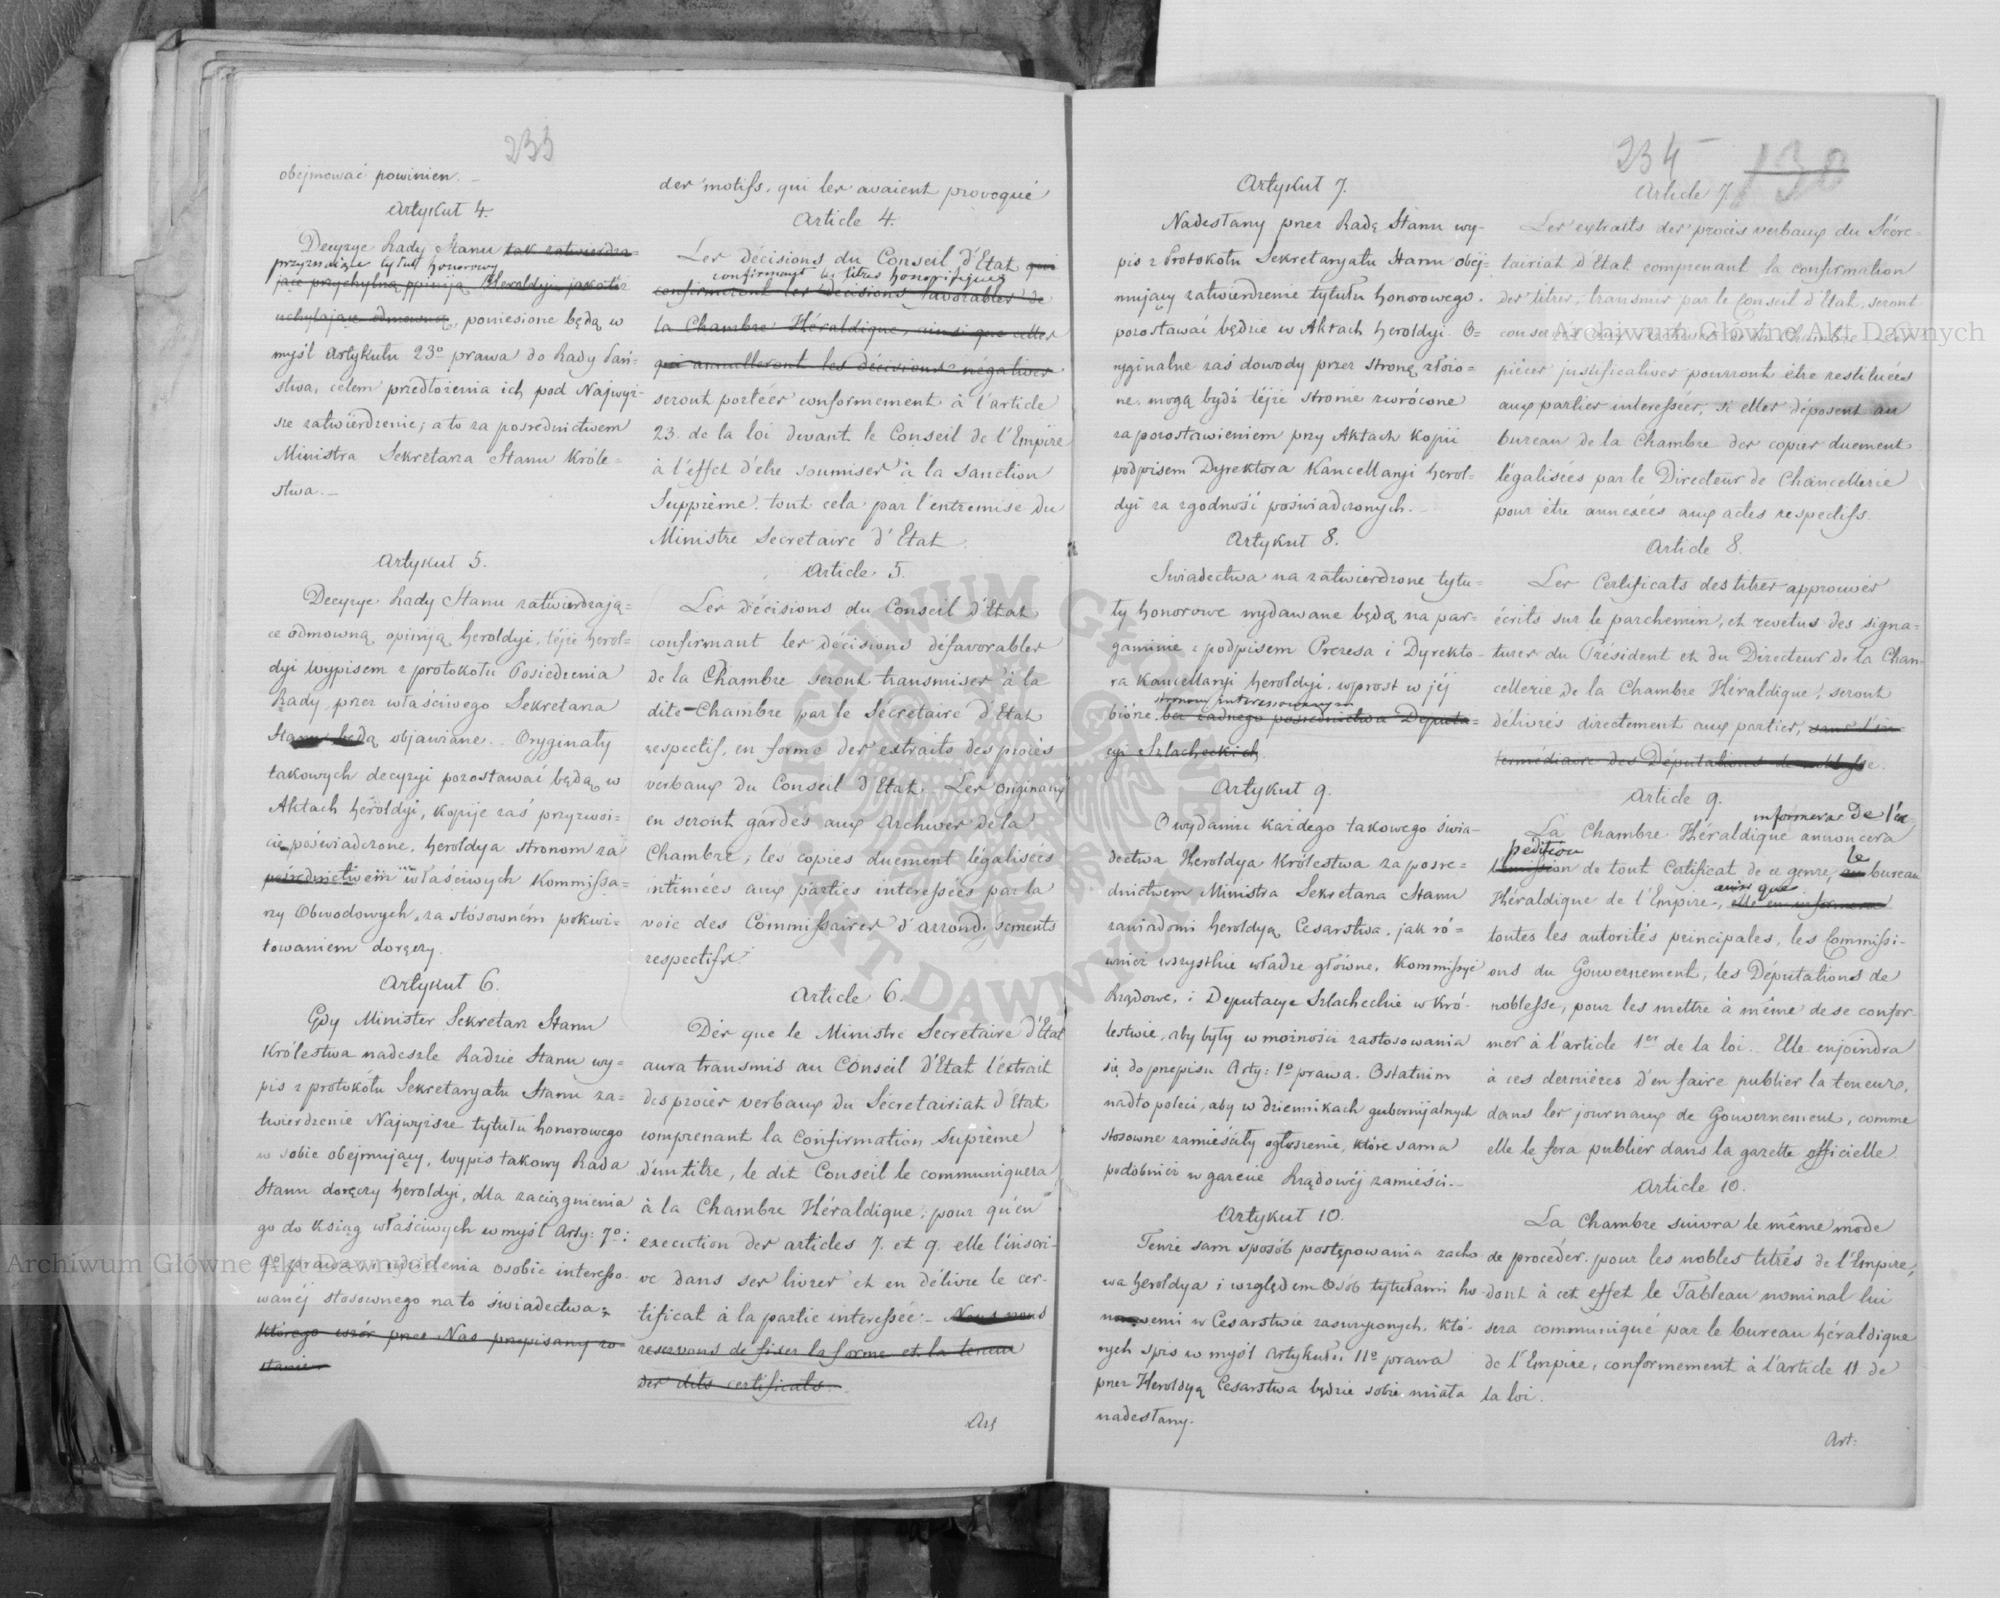 233
obejmować powinien. –
Artykuł 4.
Decyzye Rady Stanu tak zatwierdza=
przyznające tytuł honorowy
jące przychylną opiniją Heroldyi jakotéż
uchylające odmowną, poniesione będą w
myśl Artykułu 23º prawa do Rady Pań=
stwa, celem przedłożenia ich pod Najwyż=
sze zatwierdzenie; a to za pośrednictwem
Ministra Sekretarza Stanu Króle=
stwa. –
Artykuł 5.
Decyzye Rady Stanu zatwierdzają=
ce odmowną opiniją heroldyi, téjże herol=
dyi wypisem z protokołu Posiedzenia
Rady, przez właściwego Sekretarza
Stanu będą objawiane. Oryginały
takowych decyzyi pozostawać będą w
Aktach heroldyi, kopije zaś przyzwoi=
cie poświadczone, heroldya stronom za
pośrednictwem właściwych Kommissa=
rzy Obwodowych, za stosowném pokwi=
towaniem doręczy.
Artykuł 6.
Gdy Minister Sekretarz Stanu
Królestwa nadeszle Radzie Stanu wy=
pis z protokółu Sekretaryatu Stanu za=
twierdzenie Najwyższe tytułu honorowego
w sobie obejmujący, wypis takowy Rada
Stanu doręczy heroldyi, dla zaciągnienia
go do ksiąg właściwych w myśl Arty: 7º:
9º prawa i udzielenia osobie interesso=
wanéj stosownego na to świadectwa;
którego wzór przez Nas przepisany zo
stanie.
des motifs, qui les avaient provoqué
Article 4.
Les décisions du Conseil d'Etat qui
confirmant les titres honorifiques
confirmeront les décisions favorables de
la Chambre Héraldique, ainsi que celles
qui annulleront les décisions négatives
seront portées conformement à l'article
23. de la loi devant le Conseil de l'Empire
à l'effet d'etre soumises à la sanction
Suppréme. tout cela par l'entremise du
Ministre Secretaire d'Etat.
Article 5.
Les décisions du Conseil d'Etat
confirmant les décisions défavorables
de la Chambre seront transmises à la
dite Chambre par le Sécretaire d'Etat
respectif, en forme des extraits des procès
verbaux du Conseil d'Etat. Les originaux
en seront gardés aux Archives de la
Chambre; les copies duement légalisées
intimées aux parties interessées par la
voie des Commissaires d'arrondissements
respectifs.
Article 6.
Dès que le Ministre Secretaire d'Etat
aura transmis au Conseil d'Etat l'extrait
des procès verbaux du Sécretairiat d'Etat
comprenant la confirmation Suprème
d'un titre, le dit Conseil le communiquera
à la Chambre Héraldique; pour qu'en
execution des articles 7. et 9. elle l'inscri=
ve dans ses livres et en délivre le cer=
tificat à la partie interessée. – Nous nous
reservons de fixer la forme et la teneur
des dits certificats.
Art
234
130
Artykuł 7.
Nadesłany przez Radę Stanu wy=
pis z Protokołu Sekretaryatu Stanu obej=
mujący zatwierdzenie tytułu honorowego.
pozostawać będzie w Aktach heroldyi. O=
ryginalne zaś dowody przez stronę złożo=
ne, mogą bydź téjże stronie zwrócone
za pozostawieniem przy Aktach Kopii
podpisem Dyrektora Kancellaryi herol=
dyi za zgodność poświadczonych. –
Artykuł 8.
Świadectwa na zatwierdzone tytu=
ły honorowe wydawane będą na par=
gaminie z podpisem Prezesa i Dyrekto=
ra Kancellaryi heroldyi, wprost w jéj
stronom interessowanym
biórze, bez żadnego pośrednictwa Deputa=
cyi Szlacheckich.
Artykuł 9.
O wydaniu każdego takowego świa=
dectwa Heroldya Królestwa za pośre=
dnictwem Ministra Sekretarza Stanu
zawiadomi heroldyą Cesarstwa, jak ró=
wnież wszystkie władze główne, Kommissye
Rządowe, i Deputacye Szlacheckie w Kró=
lestwie, aby były w możności zastosowania
się do przepisu Arty: 1º prawa. Ostatnim
nadto poleci, aby w dziennikach gubernijalnych
stosowne zamieściły ogłoszenie, które sama
podobnież w gazecie Rządowéj zamieści. –
Artykuł 10.
Tenże sam sposób postępowania zacho
wa heroldya i względem Osób tytułami ho
norowemi w Cesarstwie zaszczyconych, któ=
rych spis w myśl Artykułu 11º prawa
przez Heroldyą Cesarstwa będzie sobie miała
nadesłany.
Article 7.
Les extraits des procès verbaux du Sécre=
tairiat d'Etat comprenant la confirmation
des titres, transmis par le Conseil d'Etat, seront
conservés aux Archives de la Chambre. Les
pièces justificatives pourront être restituées
aux parties interessées, si elles déposent au
bureau de la Chambre des copies duement
légalisées par le Directeur de Chancellerie
pour être annexées aux actes respectifs.
Article 8.
Les Certificats des titres approuvés
écrits sur le parchemin, et revetus des signa=
tures du Président et du Directeur de la Chan=
cellerie de la Chambre Héraldique, seront
délivrés directement aux parties, sans l'in=
termédiaire des Députations de noblesse.
Article 9.
informera de l'ex
La Chambre Héraldique annoncera
pedition
l'émission de tout Certificat de ce genre, au le bureau
Héraldique de l'Empire, ainsi que elle en informera
toutes les autorités principales, les Commissi=
ons du Gouvernement, les Députations de
noblesse, pour les mettre à même de se confor=
mer à l'article 1er de la loi. Elle enjoindra
à ces dernières d'en faire publier la teneur,
dans les journaux de Gouvernement, comme
elle le fera publier dans la gazette officielle.
Article 10.
La Chambre suivra le même mode
de procéder. pour les nobles titrés de l'Empire,
dont à cet effet le Tableau nominal lui
sera communiqué par le bureau héraldique
de l'Empire, conformement à l'article 11 de
la loi.
Art:
Archiwum Główne Akt Dawnych
Archiwum Główne Akt Dawnych
ARCHIWUM GŁÓWNE AKT DAWNYCH